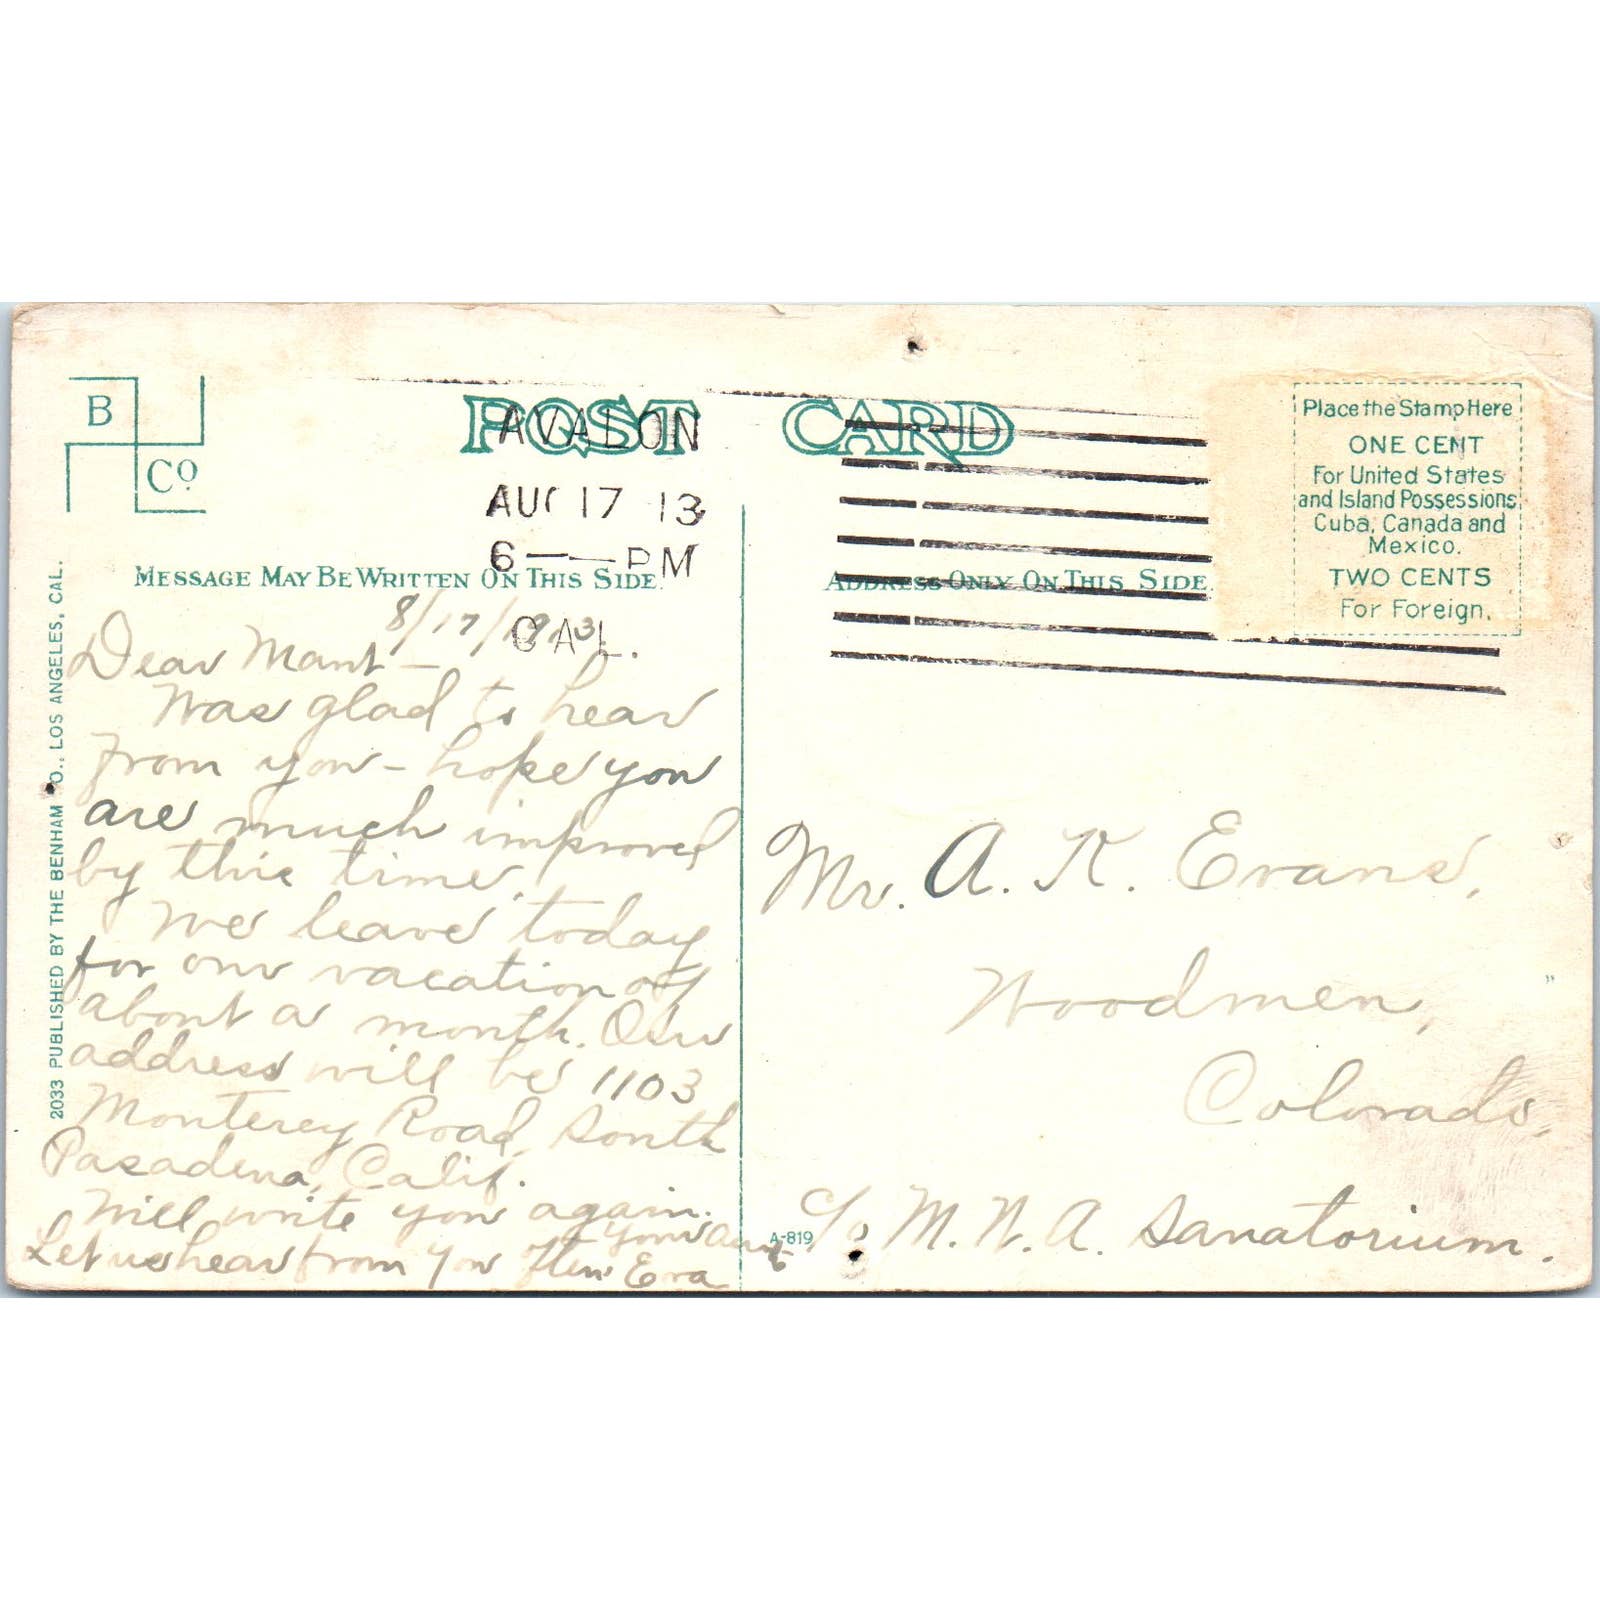 B
Co.
POST CARD
AVALON
AUG 17 13
6 — PM
CAL.
Place the Stamp Here
ONE CENT
For United States
and Island Possessions
Cuba, Canada and
Mexico.
TWO CENTS
For Foreign.
MESSAGE MAY BE WRITTEN ON THIS SIDE.
ADDRESS ONLY ON THIS SIDE
2033 PUBLISHED BY THE BENHAM CO., LOS ANGELES, CAL.
8/17/1913
Dear
Was glad to hear
from you - hope you
are much improved
by this time.
We leave today
for our vacation of
about a month. Our
address will be 1103
Monterey Road, South
Pasadena, Calif.
Will write you again.
Your Aunt
Let us hear from you often Eva
A-819
Mr. A. K. Evans,
Woodmen,
Colorado,
c/o M. W. A. Sanatorium.